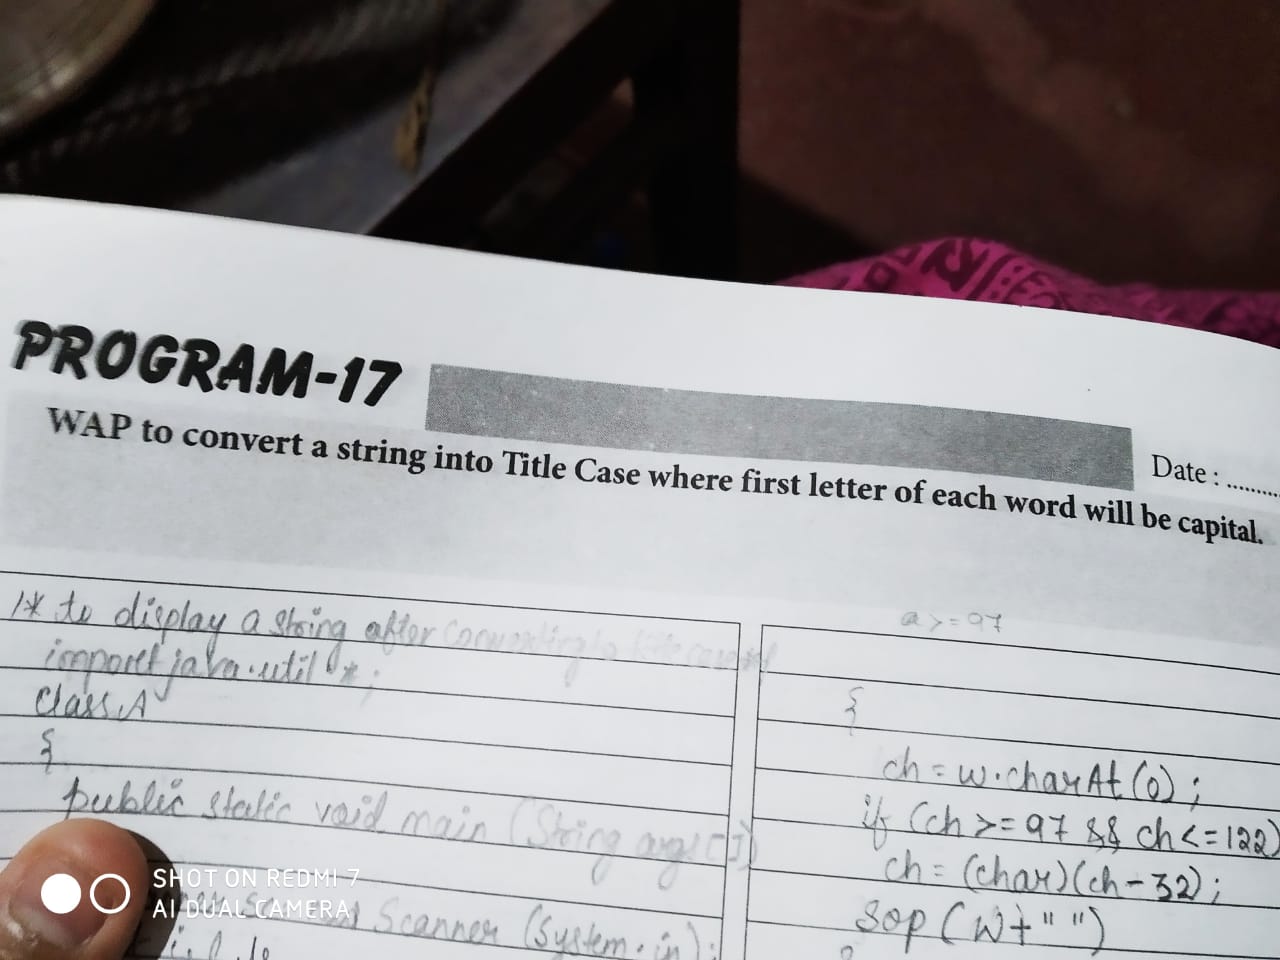 PROGRAM-17
Date : .........
WAP to convert a string into Title Case where first letter of each word will be capital.
/* to display a string after converting to
import java.util.*;
class A
{
public static void main (String arg[])
Scanner (System.in);
a >= 97
{
ch = w.charAt(0);
if (ch >= 97 && ch <= 122)
ch = (char)(ch - 32);
Sop (w + " ")
SHOT ON REDMI 7
AI DUAL CAMERA